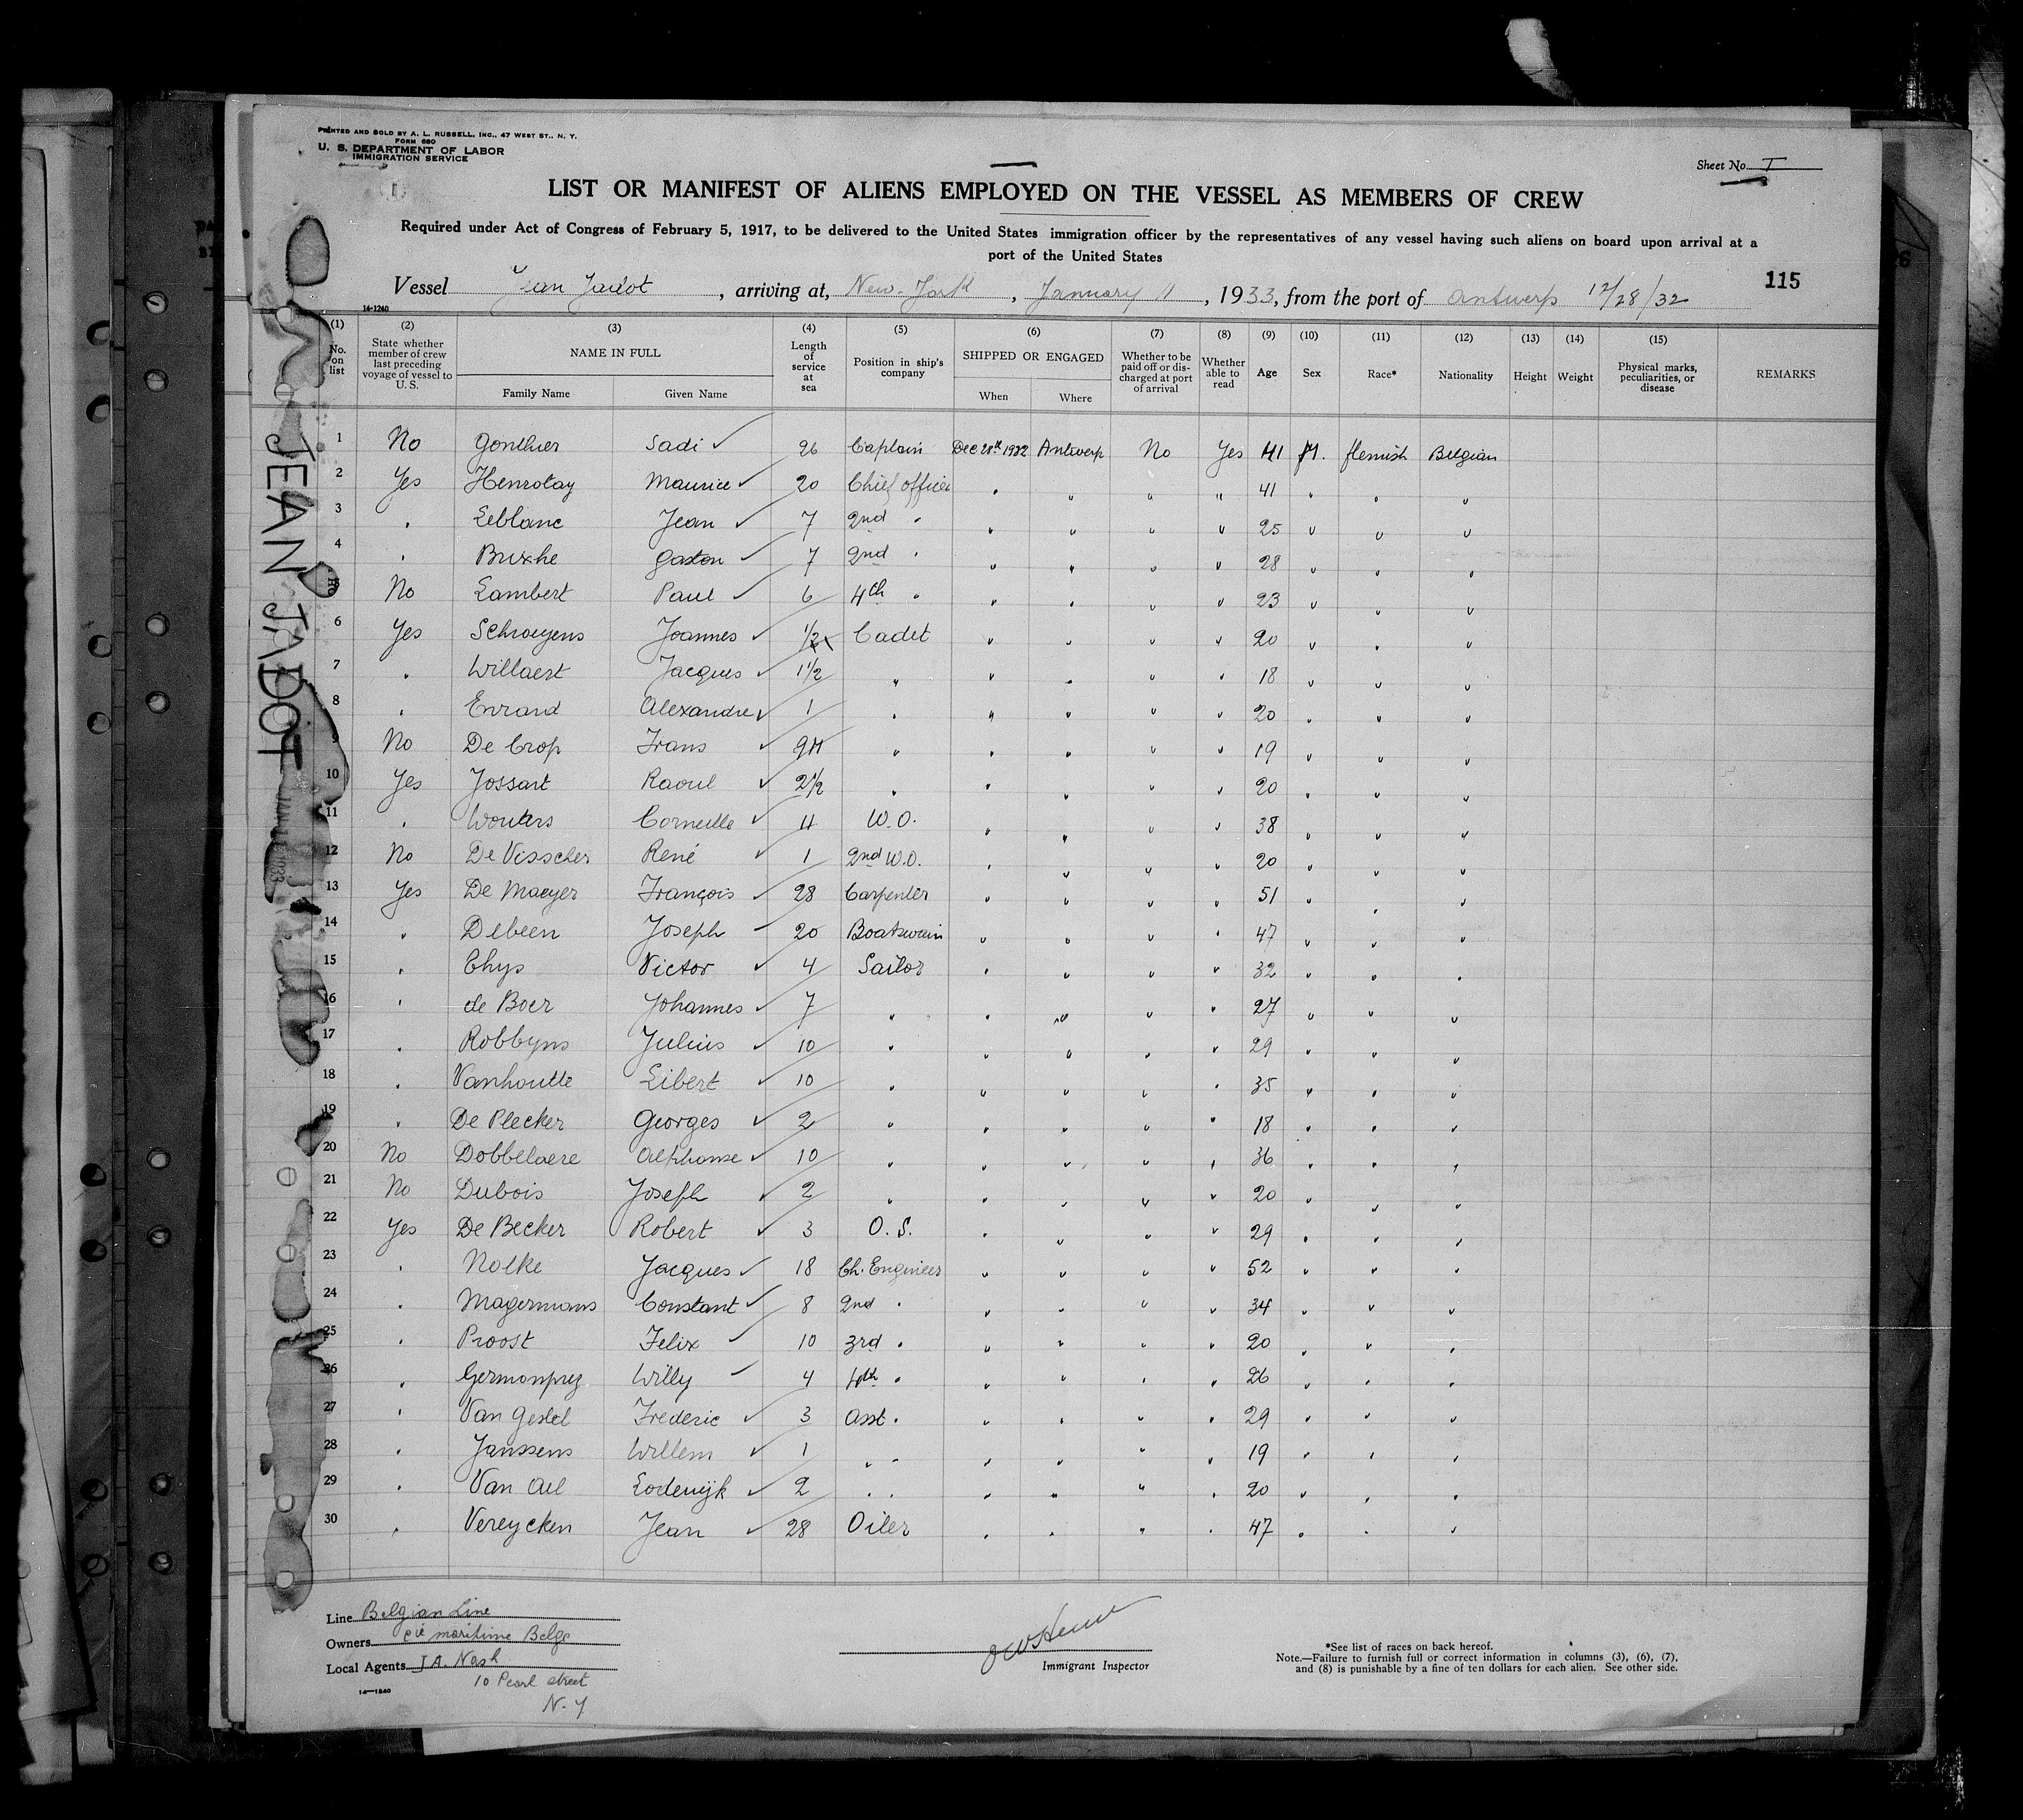 PRINTED AND SOLD BY A. L. RUSSELL, INC., 47 WEST ST., N. Y.
FORM 680
U. S. DEPARTMENT OF LABOR
IMMIGRATION SERVICE
Sheet No. I
LIST OR MANIFEST OF ALIENS EMPLOYED ON THE VESSEL AS MEMBERS OF CREW
Required under Act of Congress of February 5, 1917, to be delivered to the United States immigration officer by the representatives of any vessel having such aliens on board upon arrival at a
port of the United States
115
Vessel Jean Jadot, arriving at, New-York, January 11, 1933, from the port of Antwerp 12/28/32
14-1240
(1) No. on list (2) State whether member of crew last preceding voyage of vessel to U. S. (3) NAME IN FULL Family Name Given Name (4) Length of service at sea (5) Position in ship's company (6) SHIPPED OR ENGAGED When Where (7) Whether to be paid off or discharged at port of arrival (8) Whether able to read (9) Age (10) Sex (11) Race* (12) Nationality (13) Height (14) Weight (15) Physical marks, peculiarities, or disease REMARKS
JEAN JADOT
1 No Gonthier Sadi ✓ 26 Captain Dec 28th 1932 Antwerp No Yes 41 M. flemish Belgian
2 Yes Henrotay Maurice ✓ 20 Chief officer " " " " 41 " " "
3 " Leblanc Jean ✓ 7 2nd " " " " " 25 " " "
4 " Buxhe Gaston ✓ 7 2nd " " " " " 28 " " "
5 No Lambert Paul ✓ 6 4th " " " " " 23 " " "
6 Yes Schroeyens Joannes ✓ 1/2 Cadet " " " " 20 " " "
7 " Willaert Jacques ✓ 1 1/2 " " " " " 18 " " "
8 " Evrard Alexandre ✓ 1 " " " " " 20 " " "
9 No De Crop Frans ✓ 9M " " " " " 19 " " "
10 Yes Jossart Raoul ✓ 2 1/2 " " " " " 20 " " "
11 " Wouters Corneille ✓ 11 W.O. " " " " 38 " " "
12 No De Visscher René ✓ 1 2nd W.O. " " " " 20 " " "
13 Yes De Maeyer François ✓ 28 Carpenter " " " " 51 " " "
14 " Debeen Joseph ✓ 20 Boatswain " " " " 47 " " "
15 " Thys Victor ✓ 4 Sailor " " " " 32 " " "
16 " de Boer Johannes ✓ 7 " " " " " 27 " " "
17 " Robbyns Julius ✓ 10 " " " " " 29 " " "
18 " Vanhoutte Libert ✓ 10 " " " " " 35 " " "
19 " De Plecker Georges ✓ 2 " " " " " 18 " " "
20 No Dobbelaere Alphonse ✓ 10 " " " " " 36 " " "
21 No Dubois Joseph ✓ 2 " " " " " 20 " " "
22 Yes De Becker Robert ✓ 3 O. S. " " " " 29 " " "
23 " Nolke Jacques ✓ 18 Ch. Engineer " " " " 52 " " "
24 " Magermans Constant ✓ 8 2nd " " " " " 34 " " "
25 " Proost Felix ✓ 10 3rd " " " " " 20 " " "
26 " Germonprez Willy ✓ 4 4th " " " " " 26 " " "
27 " Van Gestel Frederic ✓ 3 Asst. " " " " 29 " " "
28 " Janssens Willem ✓ 1 " " " " " " 19 " " "
29 " Van Ael Lodewijk ✓ 2 " " " " " " 20 " " "
30 " Vereycken Jean ✓ 28 Oiler " " " " 47 " " "
Line Belgian Line
Owners Cie maritime Belge
Local Agents J.A. Nash
10 Pearl street
N. Y
14-1240
Immigrant Inspector
*See list of races on back hereof.
Note.—Failure to furnish full or correct information in columns (3), (6), (7),
and (8) is punishable by a fine of ten dollars for each alien. See other side.